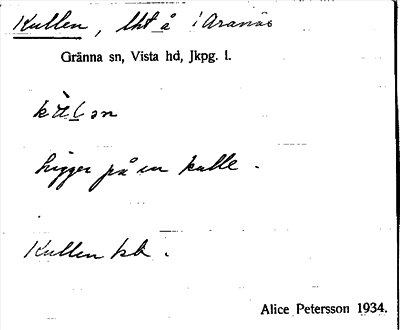 Kullen, lht å i Aranäs
Gränna sn, Vista hd, Jkpg. l.
Ligger på en kulle.
Kullen kb.
Alice Petersson 1934.